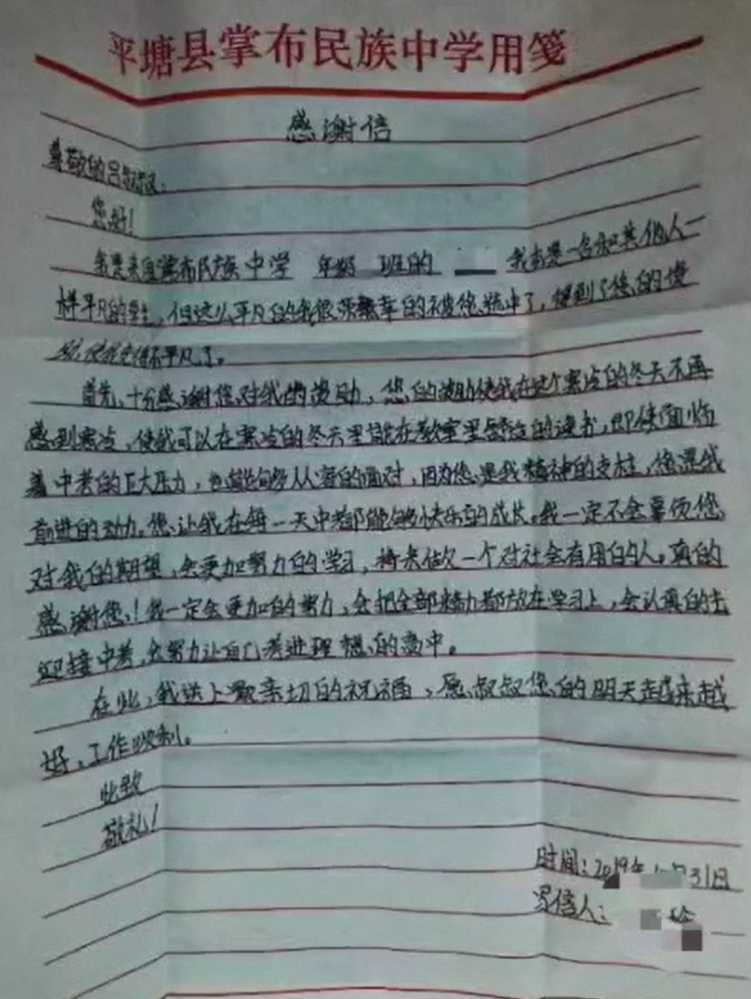 平塘县掌布民族中学用笺
感谢信
尊敬的吕叔叔:
您好!
我是来自掌布民族中学 年级 班的 我本是一名和其他人一
样平凡的学生,但这么平凡的我很荣幸的被您选中了,得到了您的援
助,使我变得不平凡了。
首先,十分感谢您对我的援助,您的援助使我在这个寒冷的冬天不再
感到寒冷,使我可以在寒冷的冬天里能在教室里舒适的读书,即使面临
着中考的巨大压力,也能够从容的面对,因为您是我精神的支柱,您是我
前进的动力,您让我在每一天中都能够快乐的成长。我一定不会辜负您
对我的期望,会更加努力的学习,将来做一个对社会有用的人。真的
感谢您!我一定会更加的努力,会把全部精力都放在学习上,会认真的去
迎接中考,会努力让自己考进理想的高中。
在此,我送上最亲切的祝福,愿叔叔您的明天越来越
好,工作顺利。
此致
敬礼!
时间:2019年 月31日
写信人: